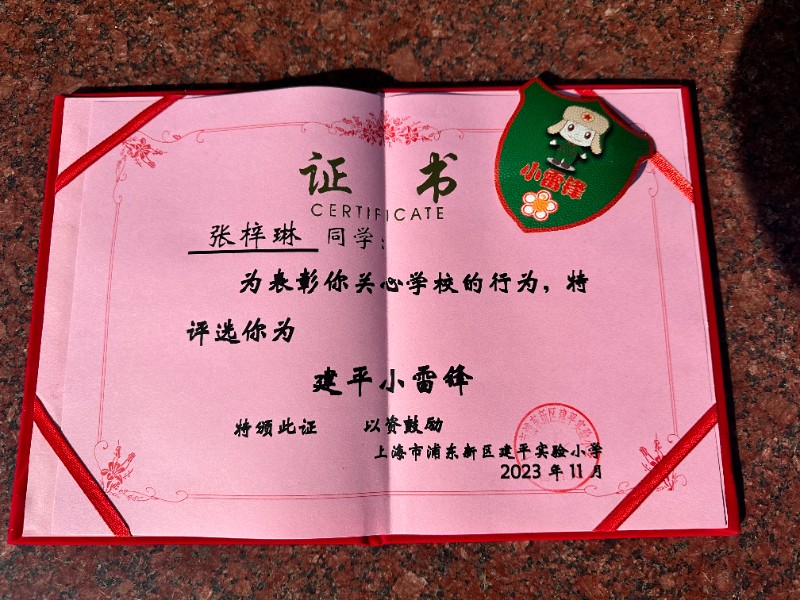 证 书
CERTIFICATE
小雷锋
张梓琳 同学：
为表彰你关心学校的行为，特
评选你为
建平小雷锋
特颁此证 以资鼓励
上海市浦东新区建平实验小学
2023 年 11 月